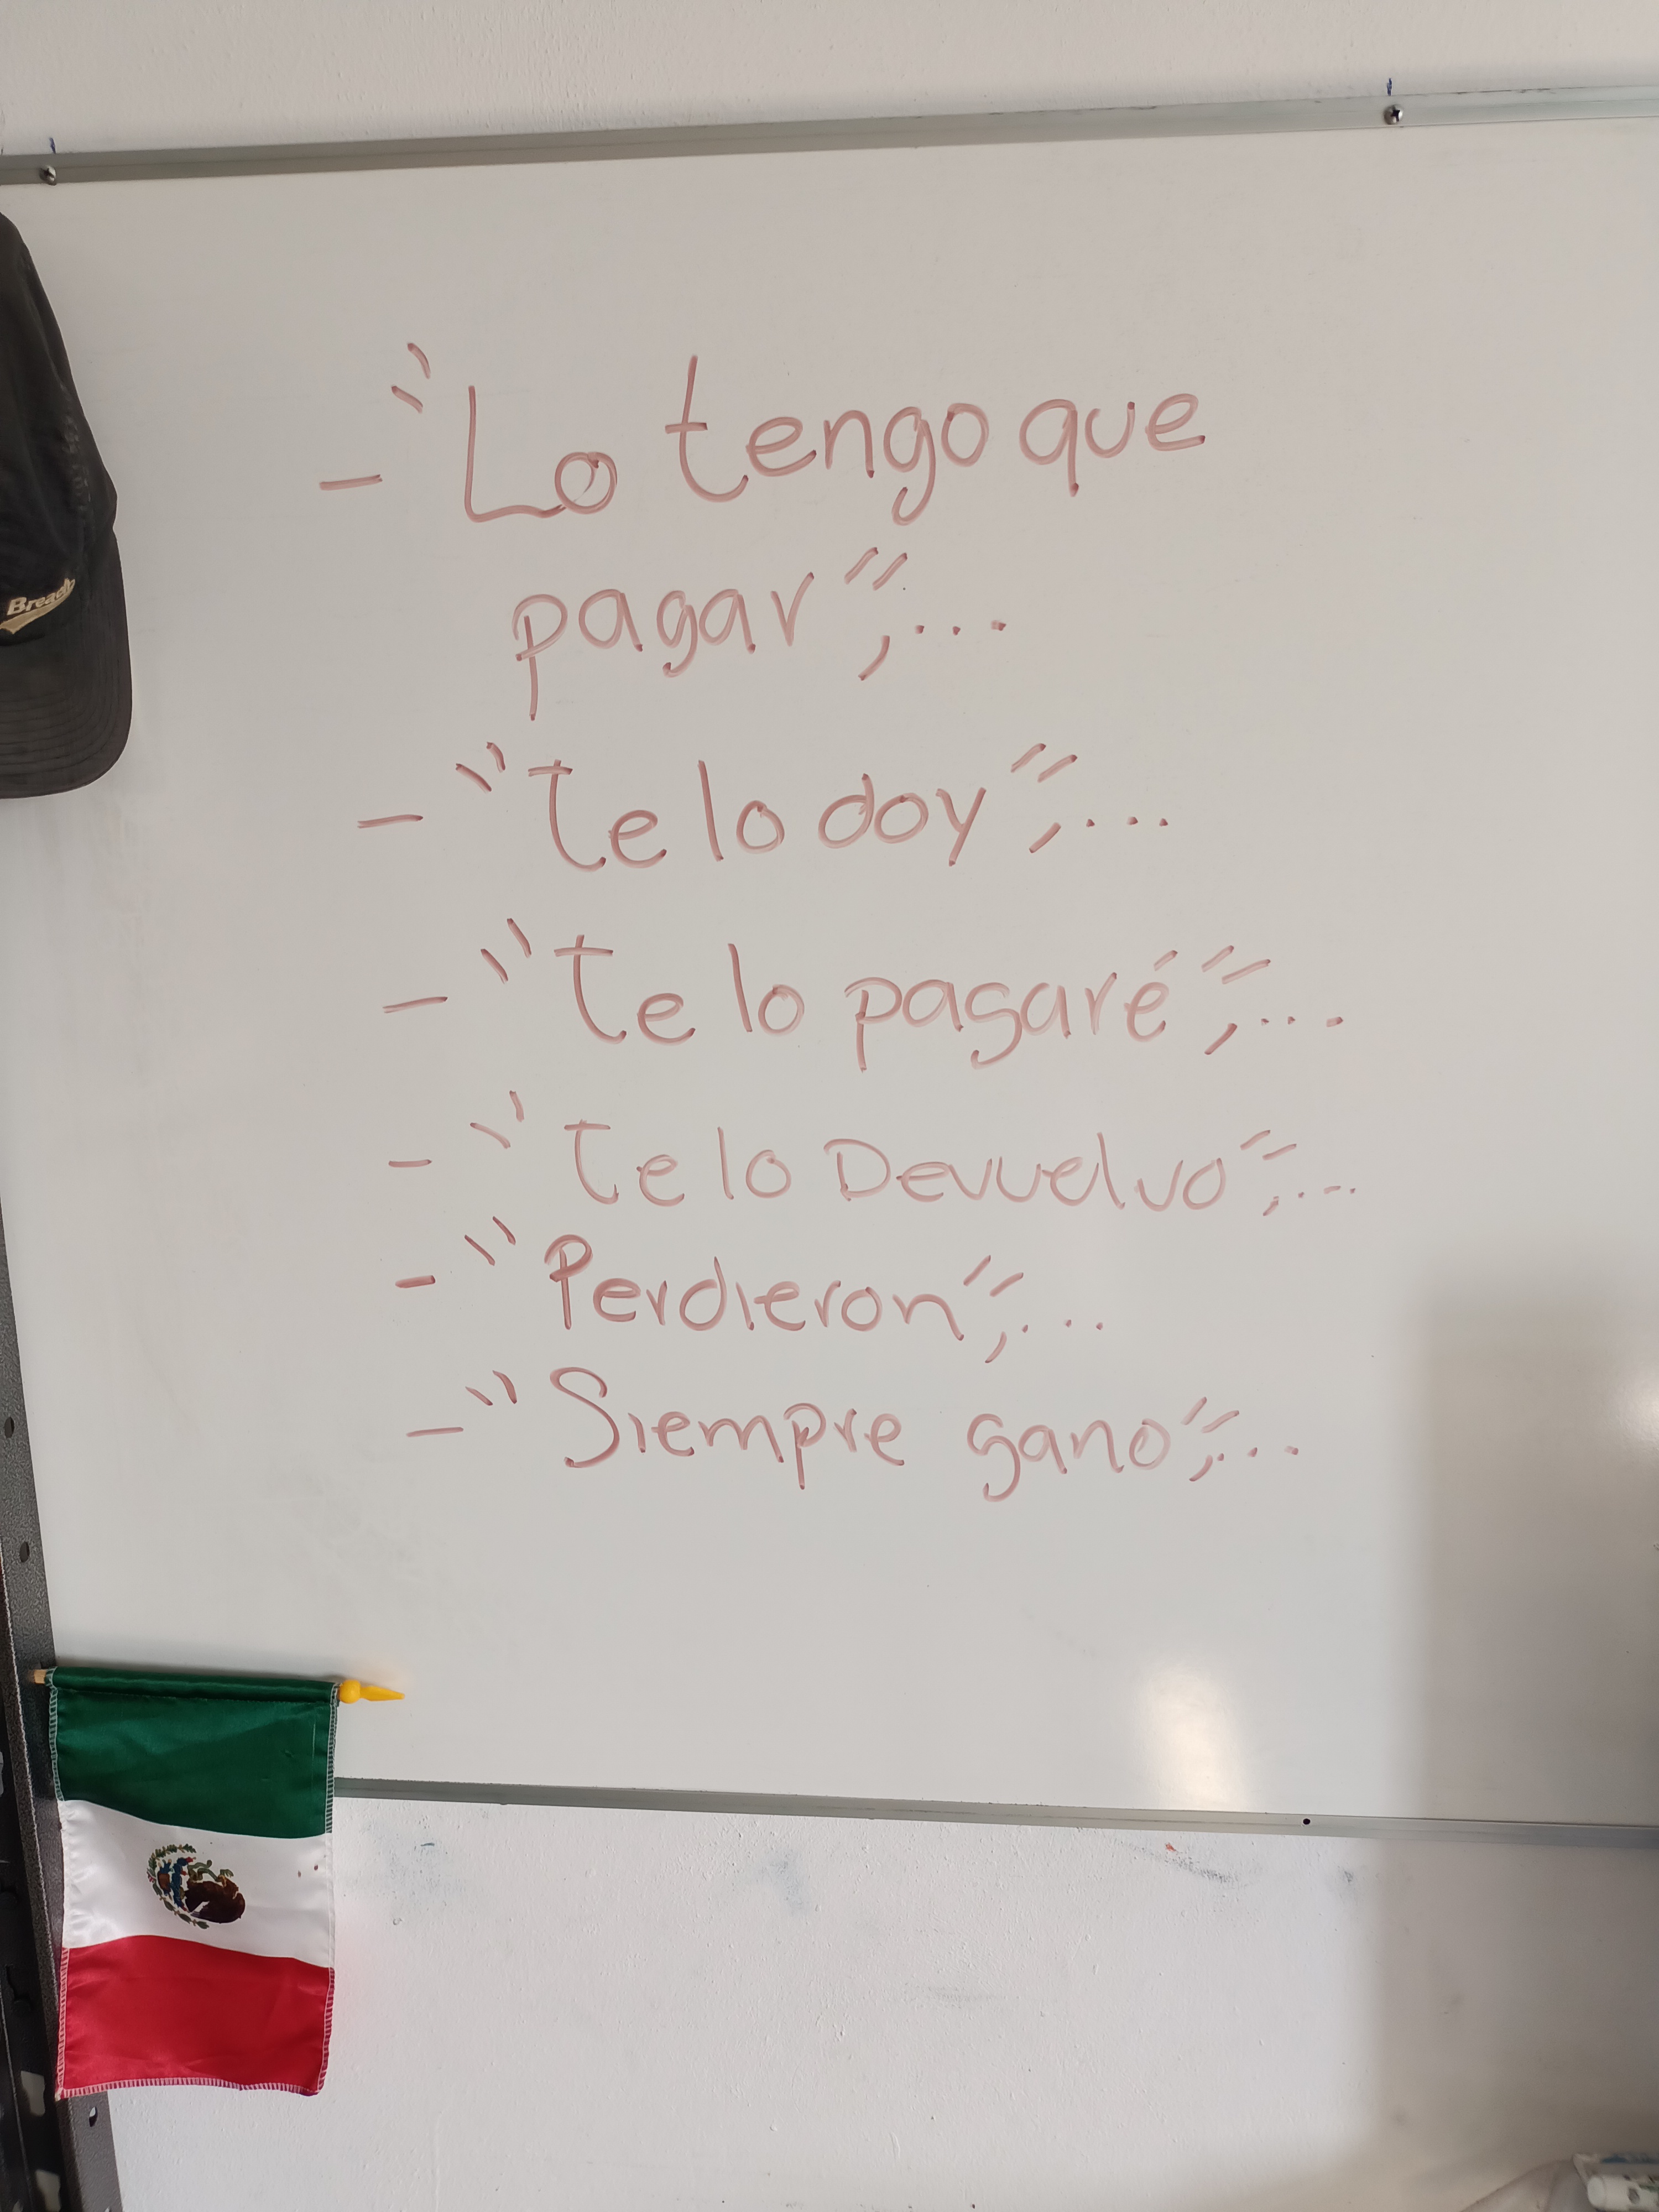 - "Lo tengo que
pagar",...
- "Te lo doy",...
- "Te lo pagaré",...
- "Te lo Devuelvo",...
- "Perdieron",...
- "Siempre gano",...